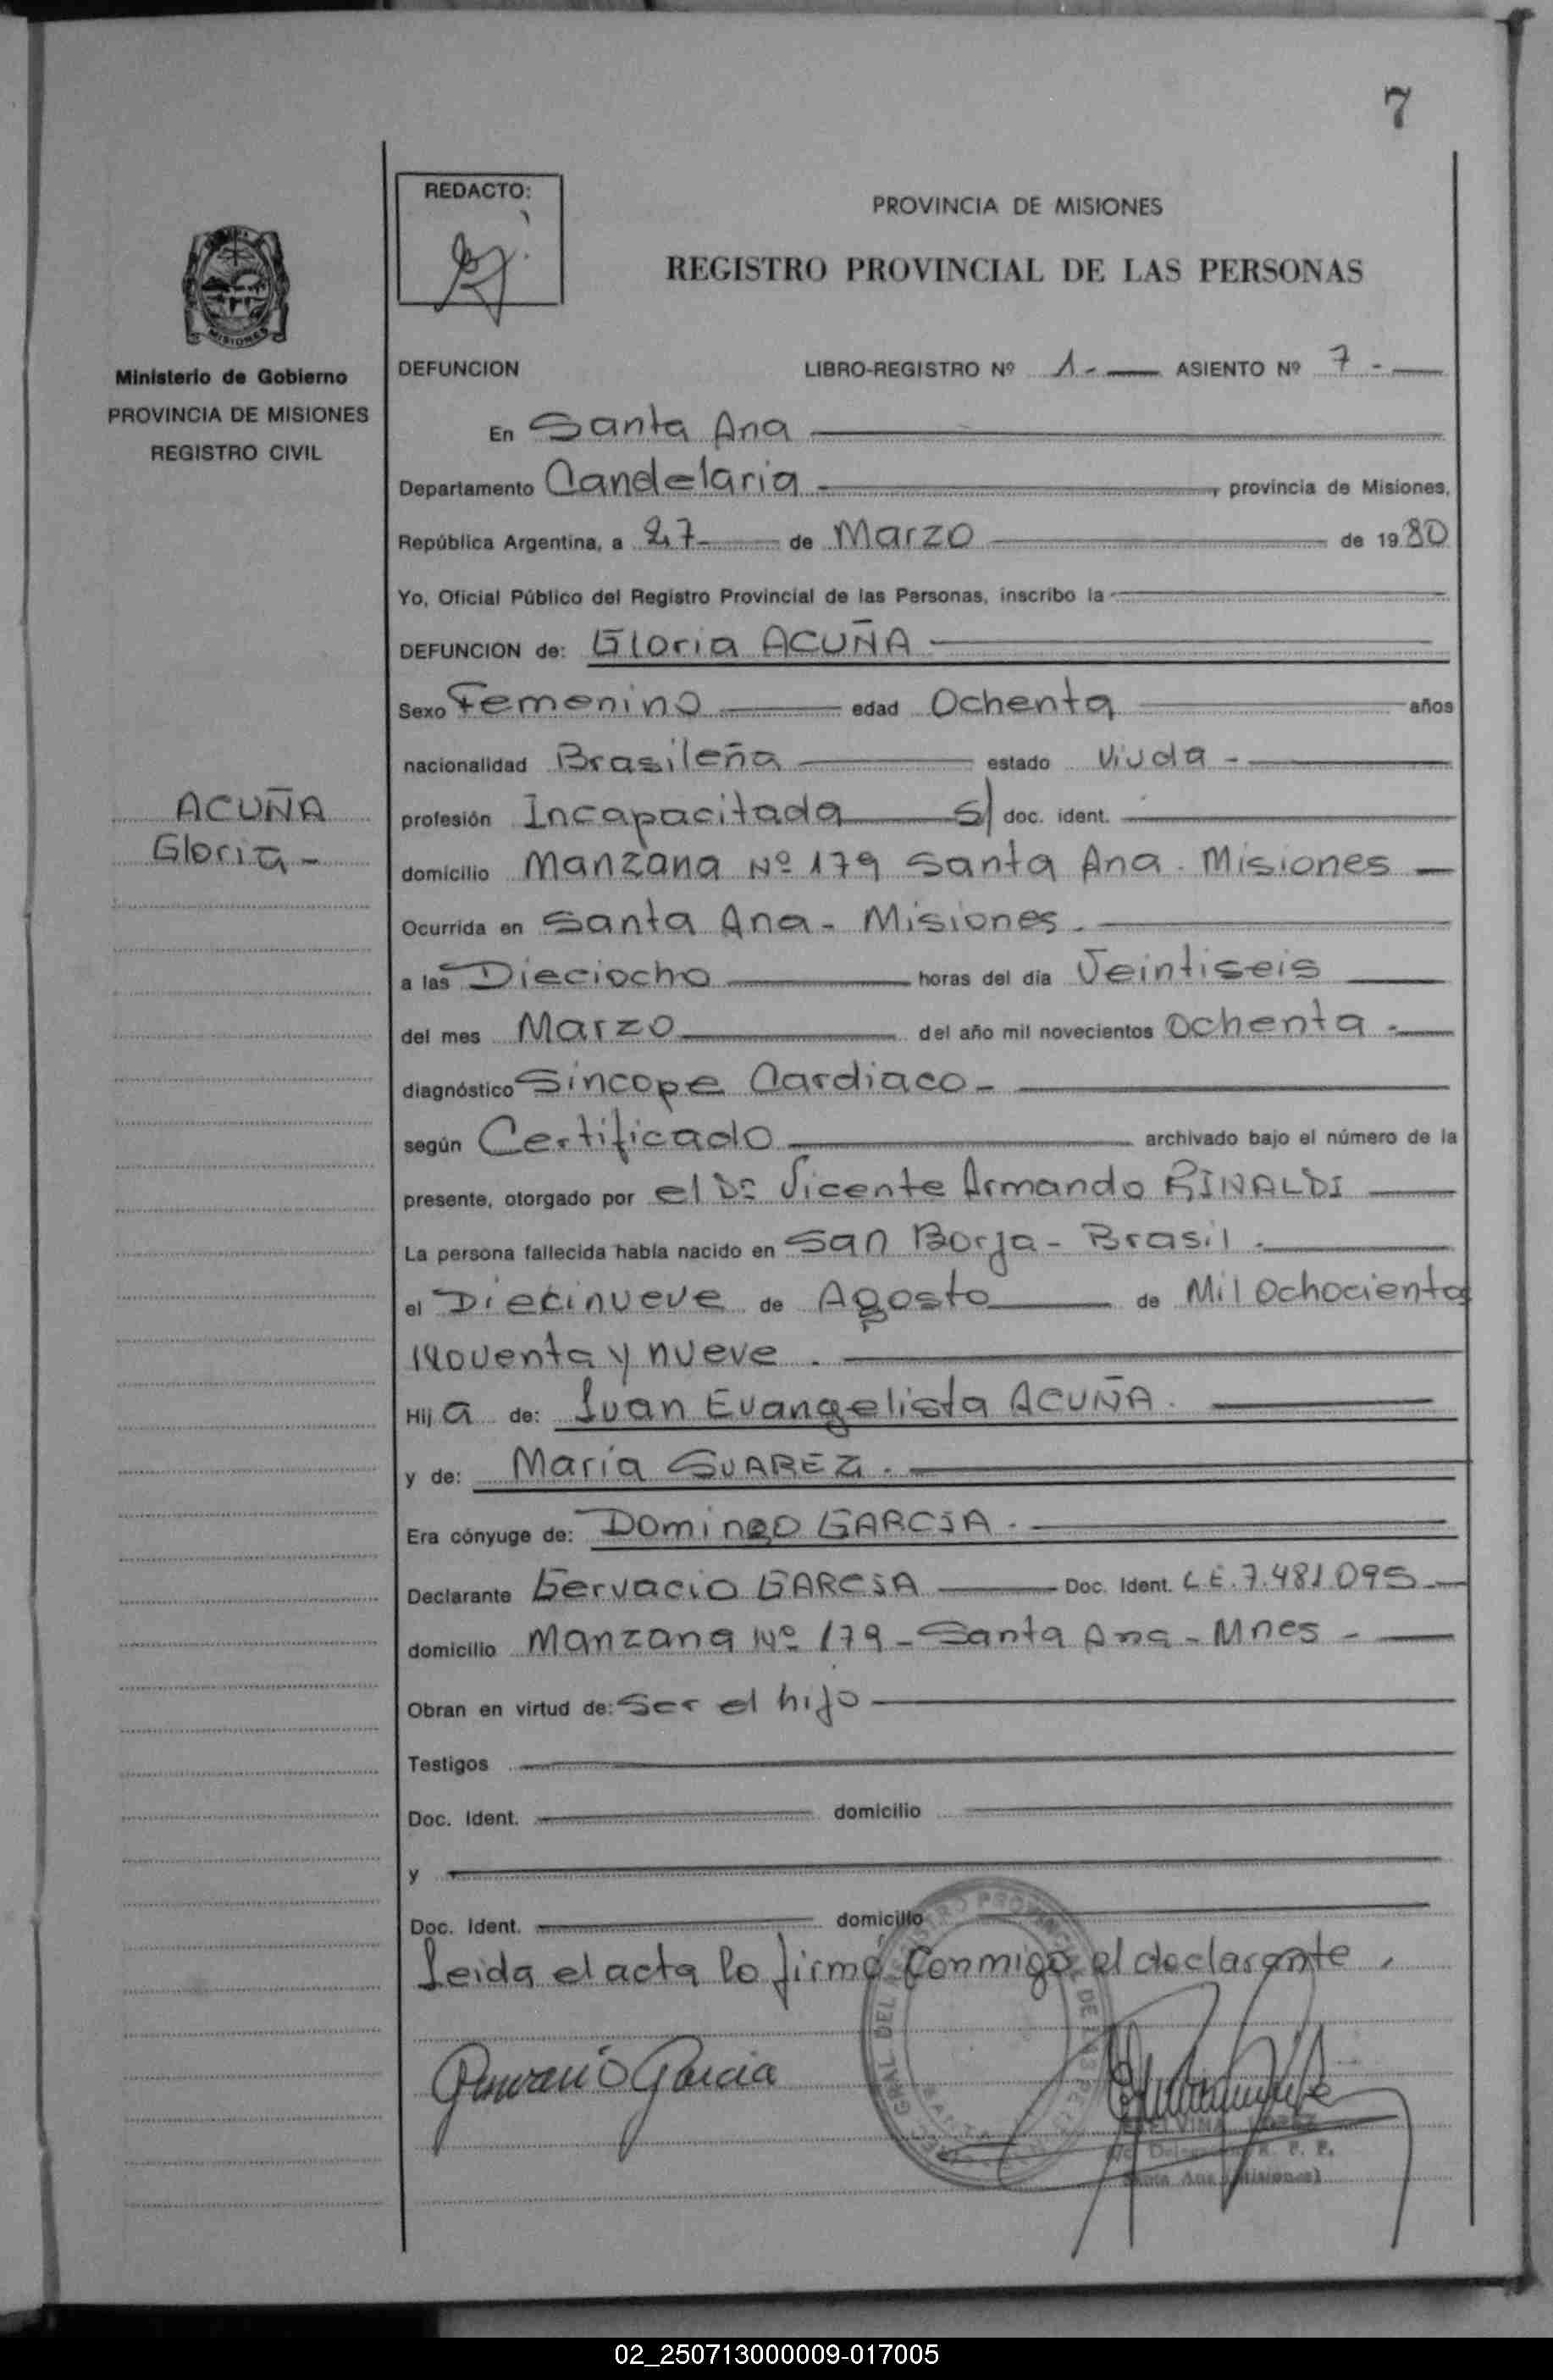 7
REDACTO:
PROVINCIA DE MISIONES
REGISTRO PROVINCIAL DE LAS PERSONAS
MISIONES
Ministerio de Gobierno
PROVINCIA DE MISIONES
REGISTRO CIVIL
DEFUNCION LIBRO-REGISTRO Nº 1.- ASIENTO Nº 7 -
En Santa Ana
Departamento Candelaria -, provincia de Misiones,
República Argentina, a 27 de Marzo de 1980
Yo, Oficial Público del Registro Provincial de las Personas, inscribo la
DEFUNCION de: Gloria ACUÑA
Sexo Femenino edad Ochenta años
nacionalidad Brasileña estado Viuda -
ACUÑA
Gloria -
profesión Incapacitada s/ doc. ident.
domicilio Manzana Nº 179 Santa Ana. Misiones
Ocurrida en Santa Ana - Misiones.
a las Dieciocho horas del día Veintiseis
del mes Marzo del año mil novecientos Ochenta -
diagnóstico Sincope Cardiaco -
según Certificado archivado bajo el número de la
presente, otorgado por el Dr Vicente Armando RINALDI
La persona fallecida había nacido en San Borja - Brasil.
el Diecinueve de Agosto de Mil Ochocientos
Noventa y nueve.
Hij a de: Juan Evangelista ACUÑA.
y de: María SUAREZ.
Era cónyuge de: Domingo GARCIA.
Declarante Gervacio GARCIA Doc. Ident. L.E. 7.481.095
domicilio Manzana Nº 179 - Santa Ana - Mnes -
Obran en virtud de: Ser el hijo
Testigos
Doc. Ident. domicilio
y
Doc. Ident. domicilio
Leida el acta lo firmó conmigo el declarante.
Gervacio Garcia
R. P. P.
02_250713000009-017005